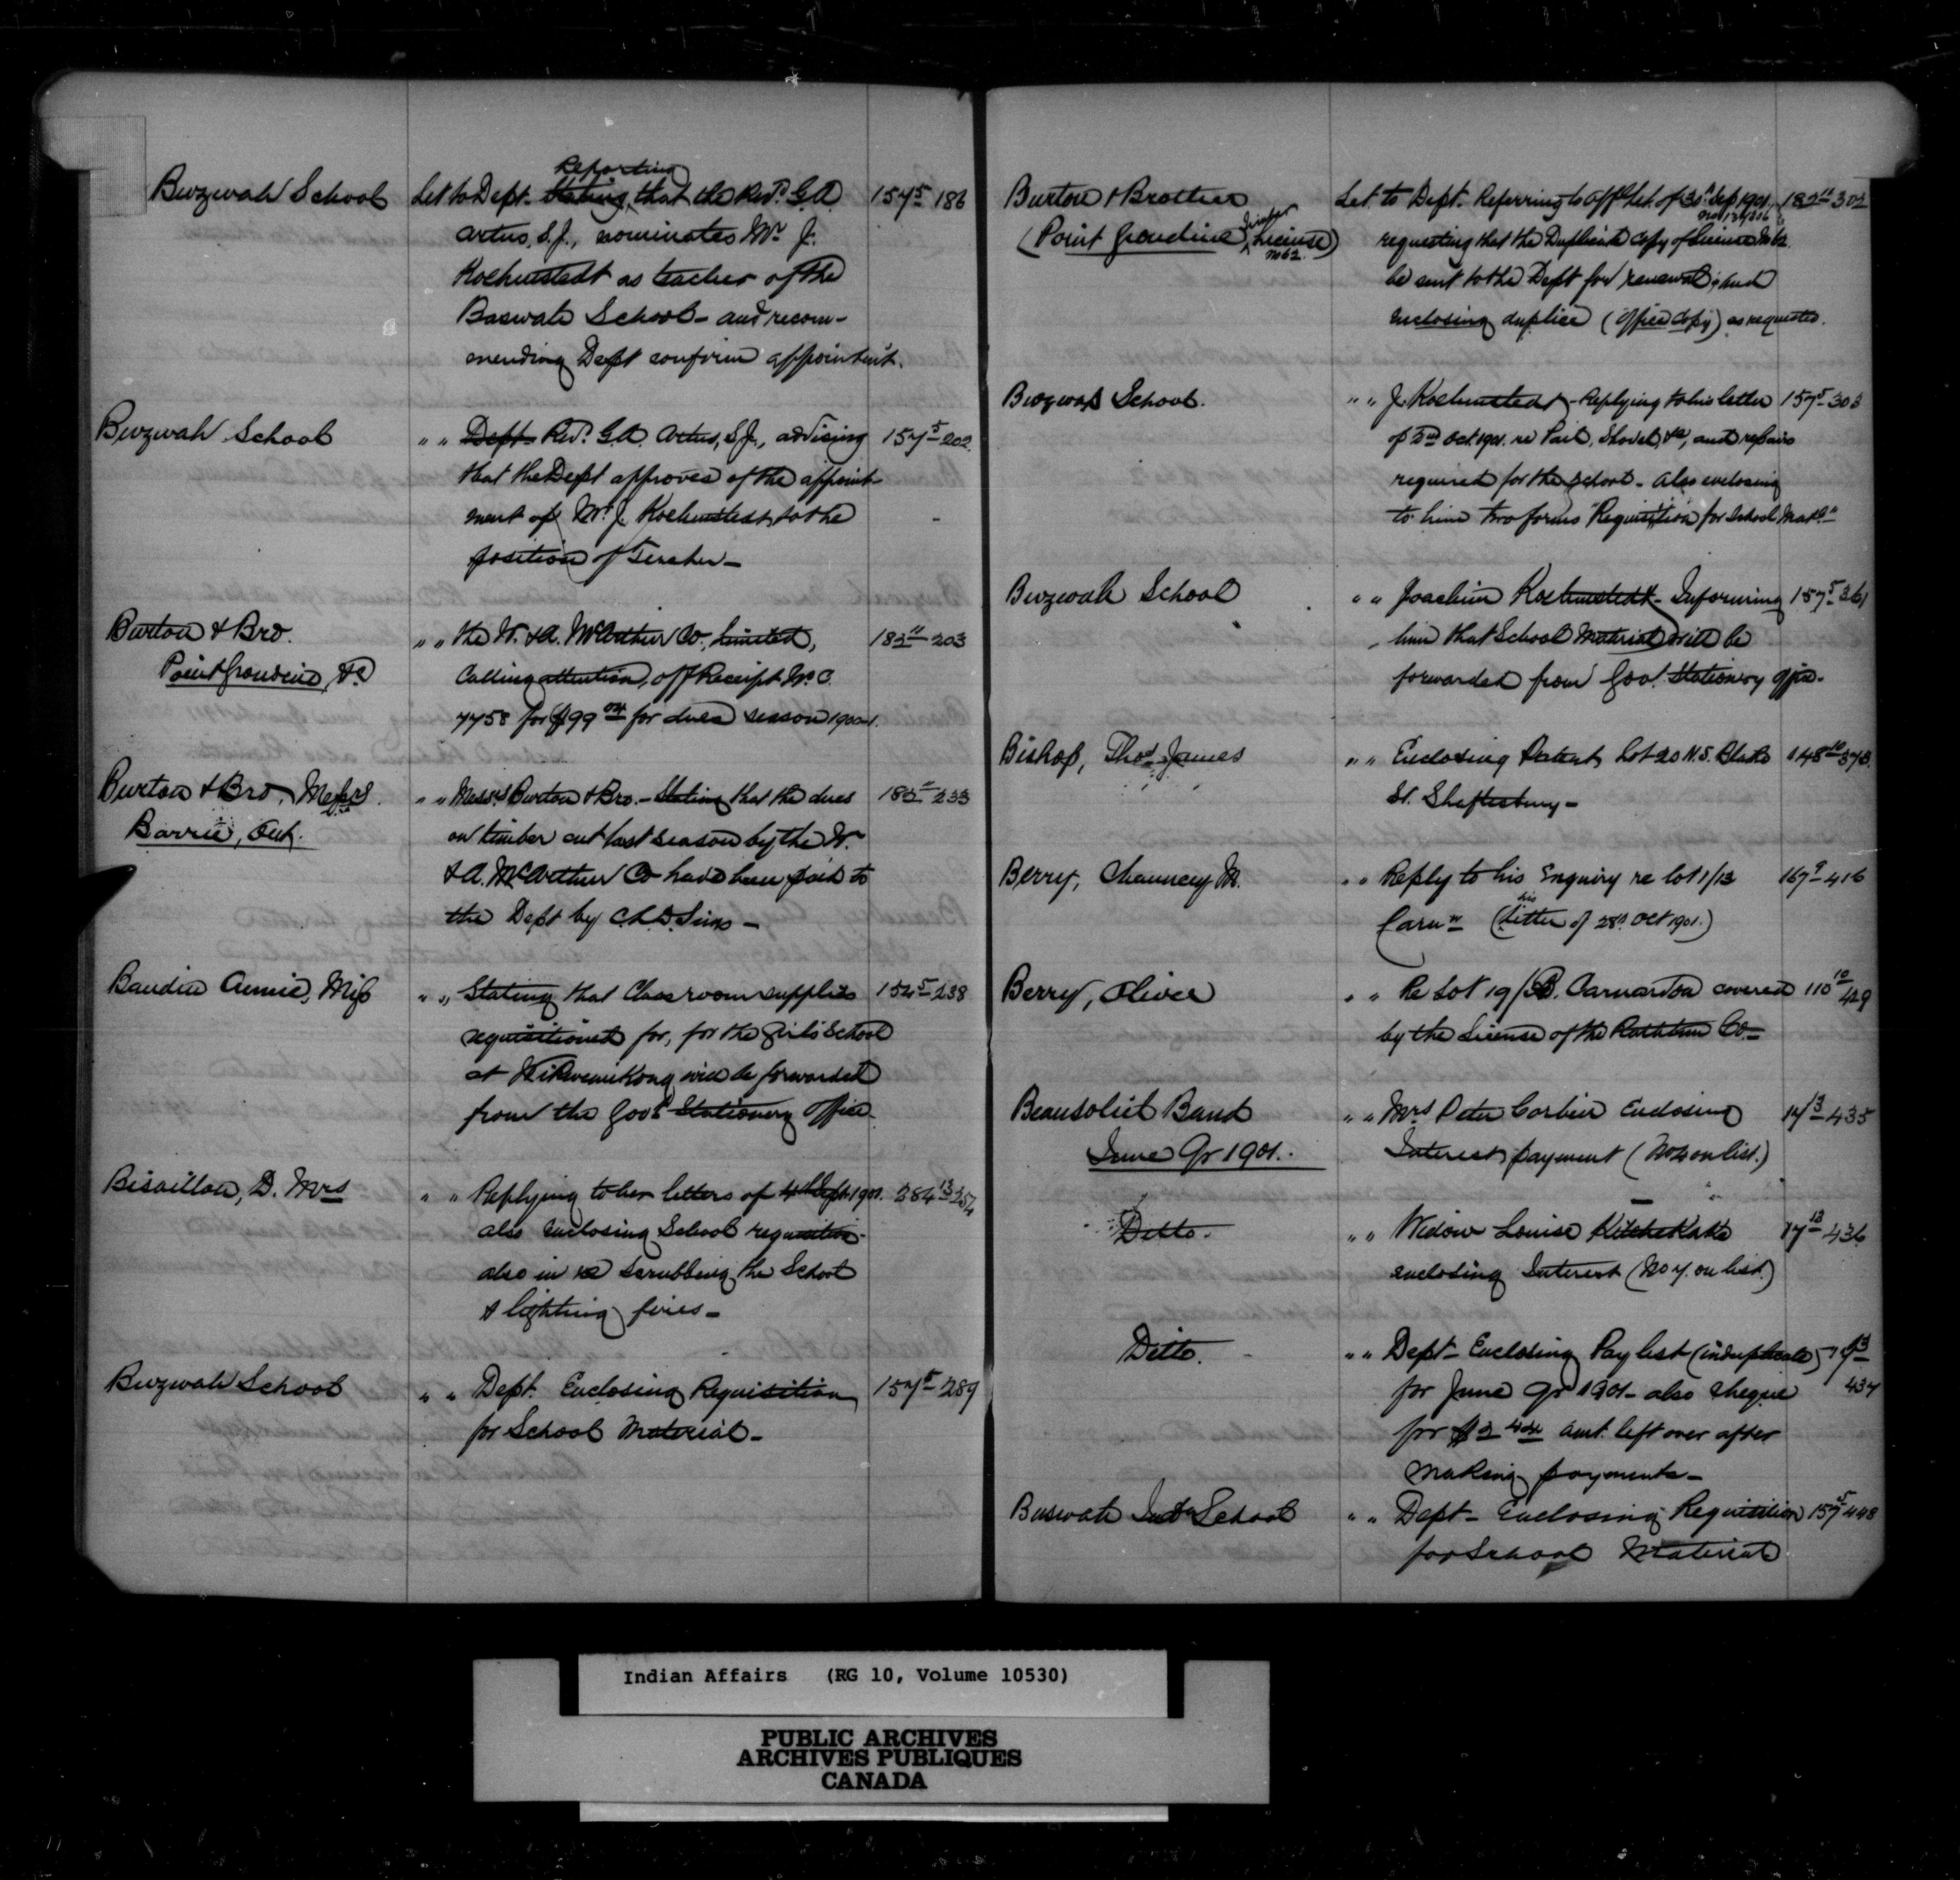 Buzwah School
Let to Dept. Stating Reporting that the Revd. G.A. 157 5 186
Artus, S.J., nominates Mr. J.
Koehmstedt as teacher of the
Baswah School - and recom-
mending Dept confirm appointm't.
Buzwah School
" " Dept. Revd. G.A. Artus, S.J., advising 157 5 202
that the Dept approves of the appoint-
ment of Mr. J. Koehmstedt to the
position of Teacher -
Burton & Bro.
Point Grondine, &c
" " the W. & A. McArthur Co., Limited, 182 11 203
Calling attention, off Receipt No. C.
7758 for $99 for dues season 1900-1.
Burton & Bro, Messrs.
Barrie, Ont.
" " Messrs Burton & Bro. - Stating that the dues 182 11 233
on timber cut last season by the W.
& A. McArthur Co have been paid to
the Dept by C.L.D. Sims -
Baudin Annie, Miss
" " Stating that Class room supplies 154 5 238
requisitioned for, for the girls School
at Wikwemikong will be forwarded
from the Govt Stationery Office.
Bisaillon, D. Mrs
" " Replying to her letters of 4th Sept. 1901. 284 13 254
also enclosing School requisition -
also in re scrubbing the School
& lighting fires -
Buzwah School
" " Dept. Enclosing Requisition 157 5 289
for School Material -
Burton & Brother
(Point Grondine Timber License)
No 62.
Let. to Dept. Referring to off Let. of 30th Sep 1901, 182 11 302
requesting that the Duplicate Copy of License No 62.
be sent to the Dept for renewal; and
enclosing duplice (office copy) as requested.
Buzwah School.
" " J. Koehmstedt - Replying to his letter 157 5 303
of 2nd Oct. 1901. re Pail, Shovel, &c, and repairs
required for the school - also enclosing
to him two forms "Requisition for School Mat'l"
Buzwah School
" " Joachim Koehmstedt - Informing 157 5 361
him that School Material will be
forwarded from Govt. Stationery Offic-
Bishop, Thos James
" " Enclosing Patent Lot 20 N.S. Blake 148 10 373
St. Shaftesbury -
Berry, Chauncey M.
" " Reply to his Enquiry re lot 1/13 167 9 416
Carn'n (his Letter of 28th Oct 1901.)
Berry, Oliver
" " Re Lot 19/5B. Carnarvon covered 110 10 429
by the License of the Rathbun Co. -
Beausoliel Band
June Qr 1901.
" " Mrs Peter Corbier Enclosing 17 13 435
Interest payment (No 4 on list.)
Ditto.
" " Widow Louise KitcheKake 17 13 436
enclosing Interest (No 7. on list.)
Ditto.
" " Dept - Enclosing Pay list (in duplicate) 17 13
for June Qr 1901 - also Cheque 437
for $2 amt. left over after
making payments -
Buswah Ind'n School
" " Dept - Enclosing Requisition 157 5 448
for School Material
Indian Affairs (RG 10, Volume 10530)
PUBLIC ARCHIVES
ARCHIVES PUBLIQUES
CANADA